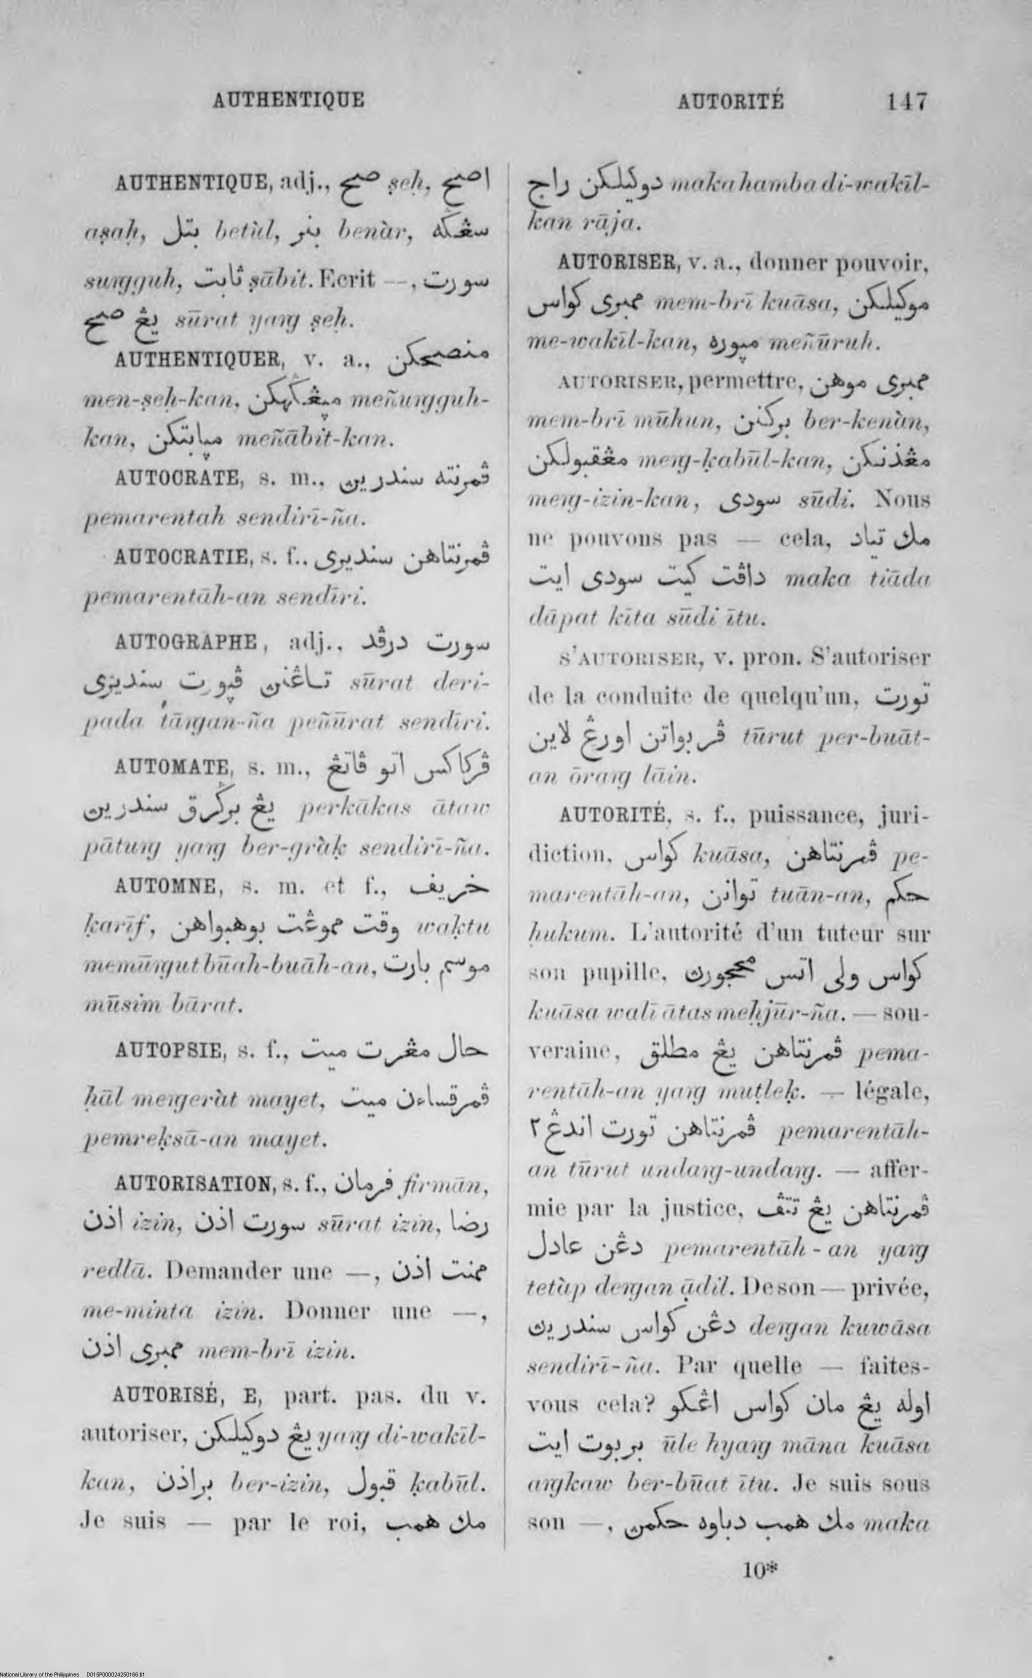 AUTHENTIQUE
AUTORITÉ 147
AUTHENTIQUE, adj., صحيح ṣeḥ, اصح
aṣaḥ, بتل betùl, بنر benàr, سڠݢه
suṅgguh, ثابت ṣābit. Ecrit —, سورت
يڠ صح sūrat yaṅg ṣeḥ.
AUTHENTIQUER, v. a., منصحكن
men-ṣeḥ-kan, مڽڠݢهكن meñuṅgguh-
kan, مڽابتكن meñābit-kan.
AUTOCRATE, s. m., ڤمرنته سندرين
pemarentah sendirī-ña.
AUTOCRATIE, s. f., ڤمرنتاهن سنديري
pemarentāh-an sendīri.
AUTOGRAPHE, adj., سورت درڤد
تاڠنڽ ڤڽورت سنديري sūrat deri-
pada tāṅgan-ña peñūrat sendīri.
AUTOMATE, s. m., ڤركاكس اتو ڤاتڠ
يڠ برݢرق سندرين perkākas ātaw
pātuṅg yaṅg ber-gràḳ sendirī-ña.
AUTOMNE, s. m. et f., خريف
ḳarīf, وقت مموڠت بوهبواهن waḳtu
memūṅgut būah-buāh-an, موسم بارت
mūsim bārat.
AUTOPSIE, s. f., حال مڠرت ميت
ḥāl meṅgeràt mayet, ڤمرقساءن ميت
pemreḳsā-an mayet.
AUTORISATION, s. f., فرمان firmān,
اذن izin, سورت اذن sūrat izin, رضا
redlā. Demander une —, ممنت اذن
me-minta izin. Donner une —,
ممبري اذن mem-brī izin.
AUTORISÉ, E, part. pas. du v.
autoriser, يڠ دوكيلكن yaṅg di-wakīl-
kan, براذن ber-izin, قبول ḳabūl.
Je suis — par le roi, مك همب
دوكيلكن راج maka hamba di-wakīl-
kan rāja.
AUTORISER, v. a., donner pouvoir,
ممبري كواس mem-brī kuāsa, موكيلكن
me-wakīl-kan, مڽوره meñūruh.
AUTORISER, permettre, ممبري موهن
mem-brī mūhun, بركنن ber-kenàn,
مڠقبولكن meṅg-ḳabūl-kan, مڠذنكن
meṅg-izin-kan, سودي sūdi. Nous
ne pouvons pas — cela, مك تياد
داڤت كيت سودي ايت maka tiāda
dāpat kīta sūdi ītu.
S'AUTORISER, v. pron. S'autoriser
de la conduite de quelqu'un, تورت
ڤربواتن اورڠ لاين tūrut per-buāt-
an ōraṅg lāin.
AUTORITÉ, s. f., puissance, juri-
diction, كواس kuāsa, ڤمرنتاهن pe-
marentāh-an, توانن tuān-an, حكم
ḥukum. L'autorité d'un tuteur sur
son pupille, كواس ولي اتس محجورڽ
kuāsa walī ātas meḥjūr-ña. — sou-
veraine, ڤمرنتاهن يڠ مطلق pema-
rentāh-an yaṅg muṭleḳ. — légale,
ڤمرنتاهن تورت اندڠ٢ pemarentāh-
an tūrut undaṅg-undaṅg. — affer-
mie par la justice, ڤمرنتاهن يڠ تتڤ
دڠن عادل pemarentāh-an yaṅg
tetàp deṅgan ạ̄dil. De son — privée,
دڠن كواس سندريڽ deṅgan kuwāsa
sendirī-ña. Par quelle — faites-
vous cela? اوله يڠ مان كواس اڠكو
بربوت ايت ūle hyaṅg māna kuāsa
aṅgkaw ber-būat ītu. Je suis sous
son —, مك همب دباوه حكمن maka
10*
National Library of the Philippines D01SP000024250166.tif